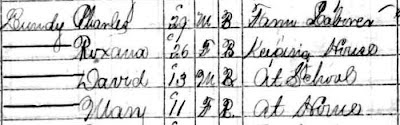 Bundy Charles 29 M B Farm Laborer
Roxana 26 F B Keeping House
David 13 M B At School
Mary 11 F B At Home